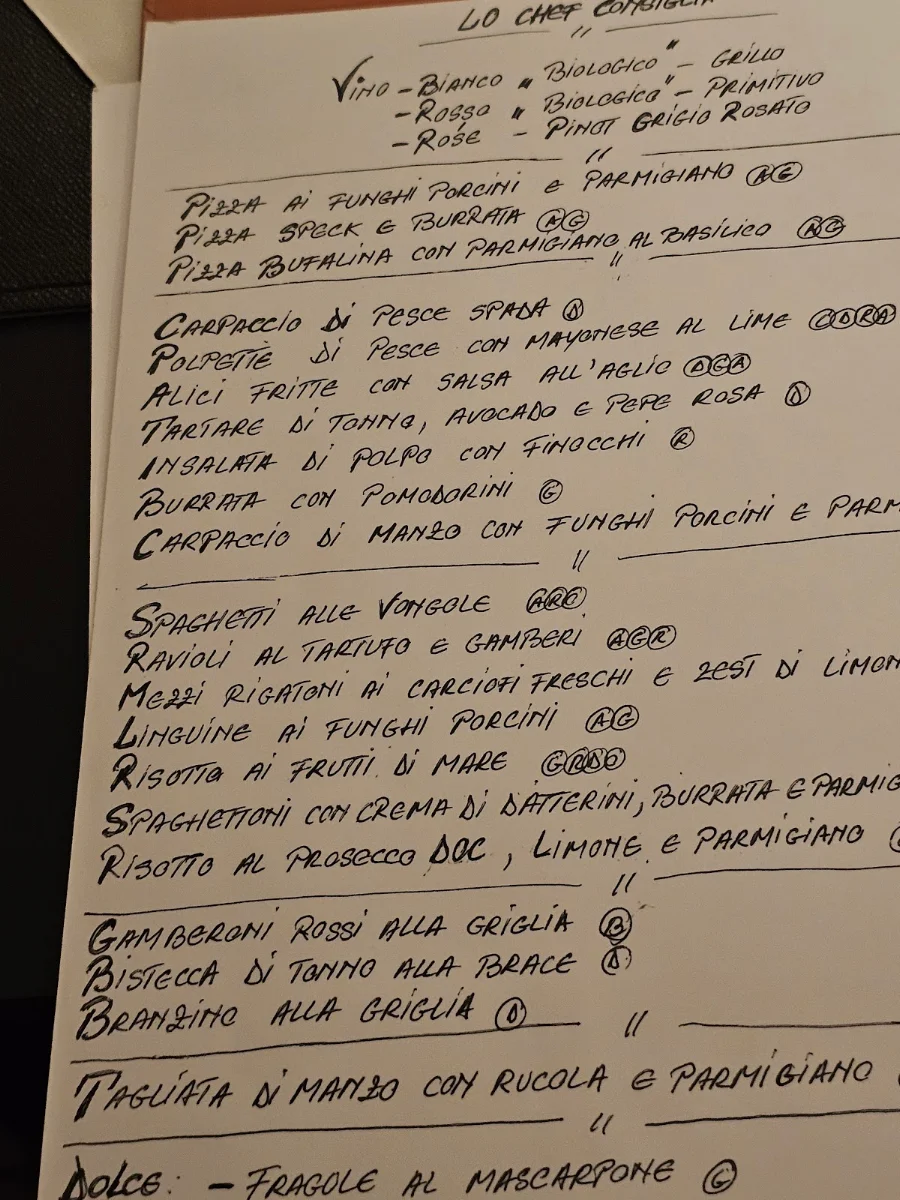 LO CHEF CONSIGLIA
VINO - BIANCO " BIOLOGICO " - GRILLO
- ROSSO " BIOLOGICO " - PRIMITIVO
- ROSÉ - PINOT GRIGIO ROSATO
PIZZA AI FUNGHI PORCINI E PARMIGIANO A G
PIZZA SPECK E BURRATA A G
PIZZA BUFALINA CON PARMIGIANO AL BASILICO A G
CARPACCIO DI PESCE SPADA D
POLPETTE DI PESCE CON MAYONESE AL LIME C D R A
ALICI FRITTE CON SALSA ALL'AGLIO D G A
TARTARE DI TONNO, AVOCADO E PEPE ROSA D
INSALATA DI POLPO CON FINOCCHI R
BURRATA CON POMODORINI G
CARPACCIO DI MANZO CON FUNGHI PORCINI E PARM
SPAGHETTI ALLE VONGOLE A R C
RAVIOLI AL TARTUFO E GAMBERI A G R
MEZZI RIGATONI AI CARCIOFI FRESCHI E ZEST DI LIMON
LINGUINE AI FUNGHI PORCINI A G
RISOTTO AI FRUTTI DI MARE G R D O
SPAGHETTONI CON CREMA DI DATTERINI, BURRATA E PARMIG
RISOTTO AL PROSECCO DOC, LIMONE E PARMIGIANO
GAMBERONI ROSSI ALLA GRIGLIA B
BISTECCA DI TONNO ALLA BRACE D
BRANZINO ALLA GRIGLIA D
TAGLIATA DI MANZO CON RUCOLA E PARMIGIANO
DOLCE: - FRAGOLE AL MASCARPONE G